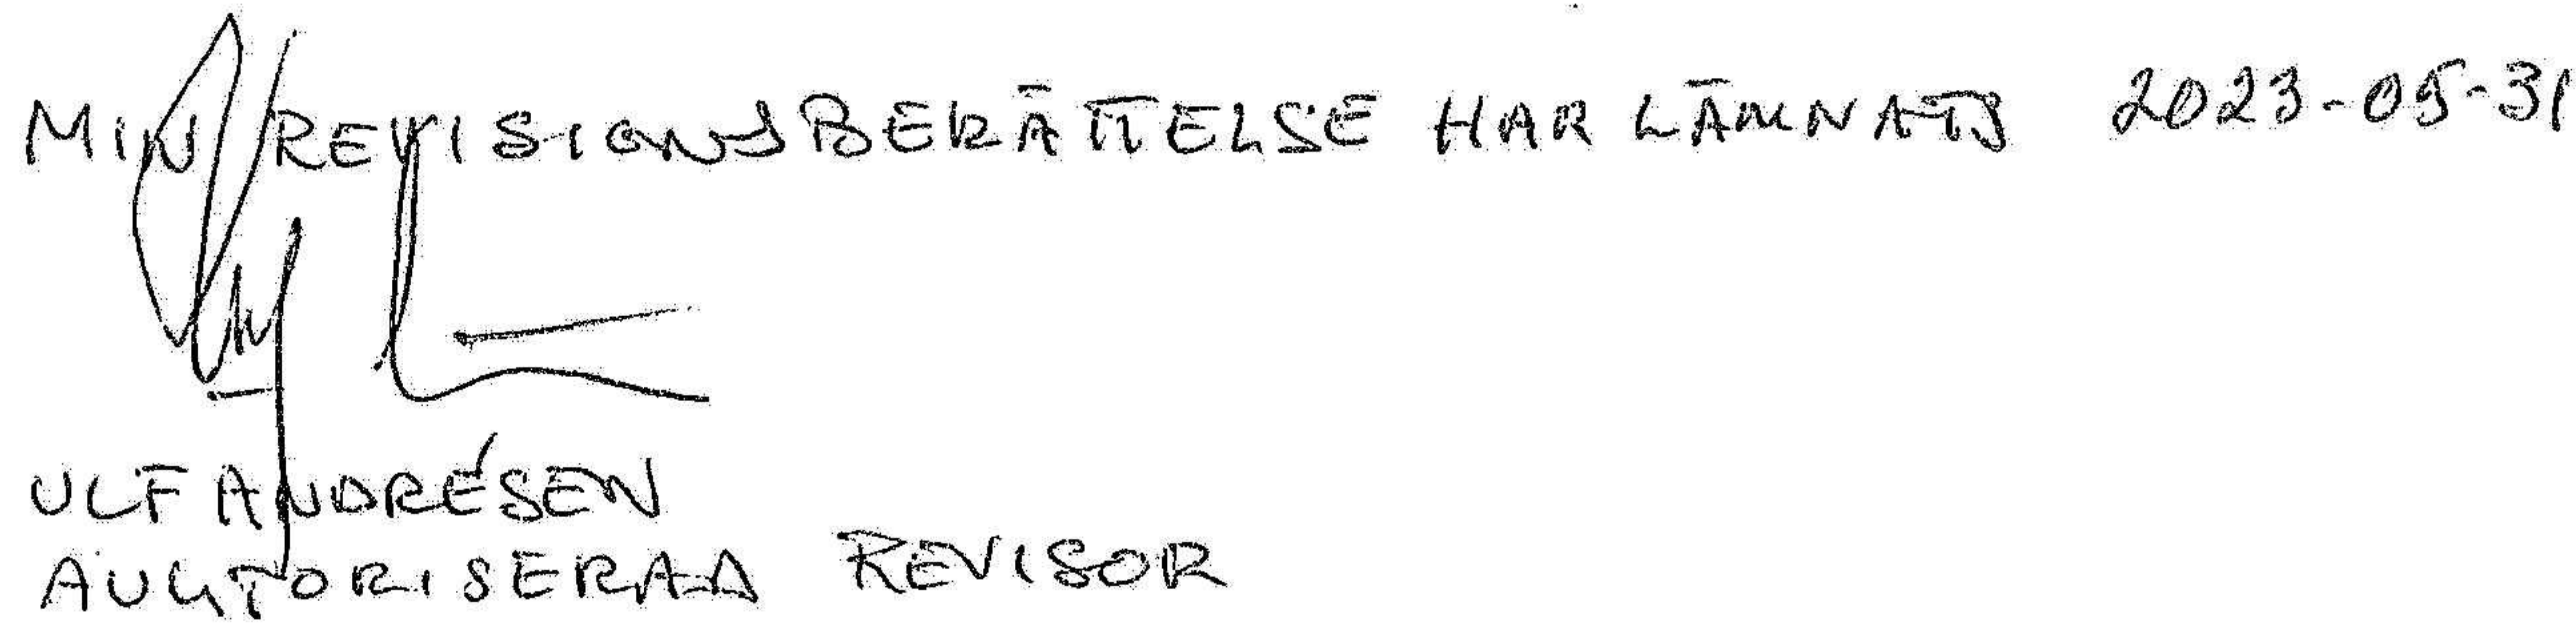 MIN REVISIONSBERÄTTELSE HAR LÄMNATS 2023-05-31
ULF ANDRÉSEN
AUKTORISERAD REVISOR